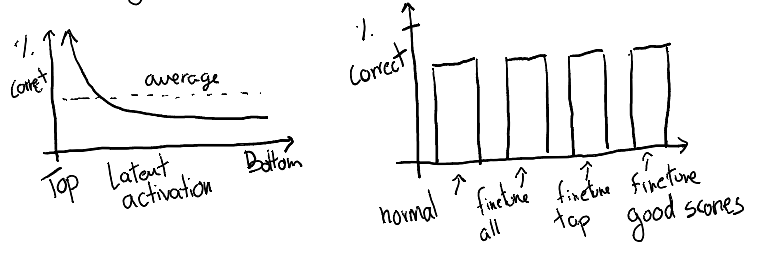 %.
Correct
average
Top
Latent
activation
Bottom
%.
Correct
normal
finetune
all
finetune
top
finetune
good scores